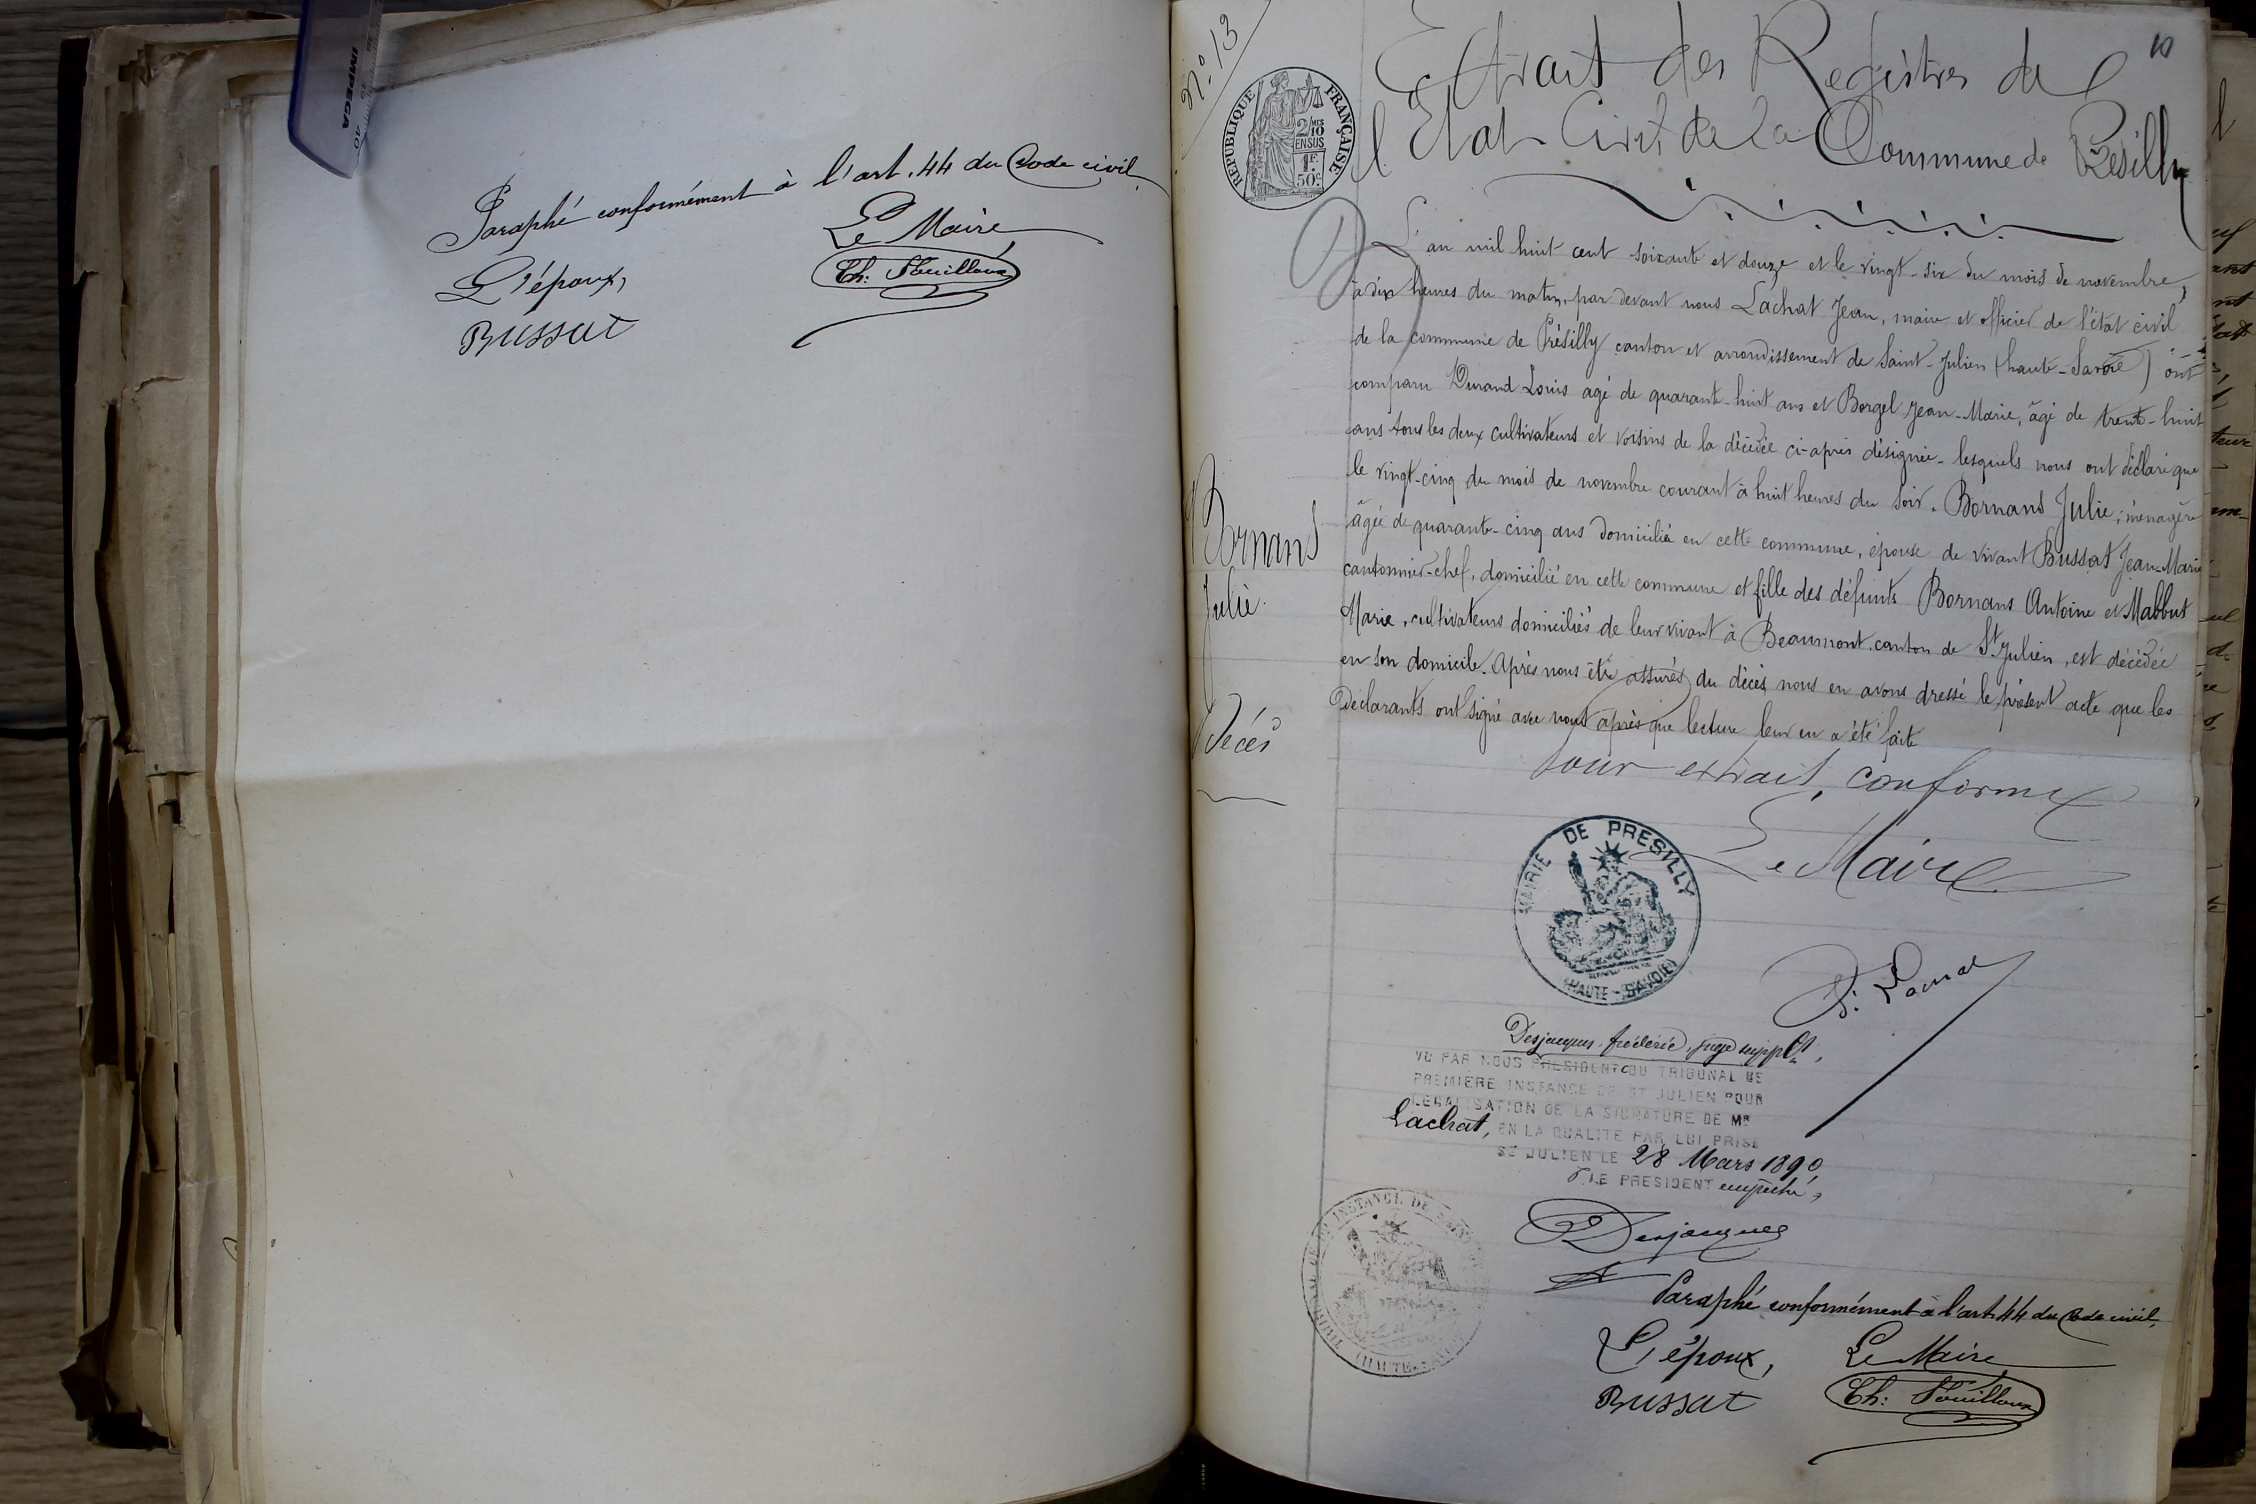 IMPEGA
Paraphé conformément à l'art. 44 du Code civil,
Le Maire
L'époux,
Th: Fouilloux
BUSSAT
10
N.º 13
Extrait des Registres de
l'Etat Civil de la Commune de Présilly
REPUBLIQUE FRANÇAISE
2/10 MES
EN SUS
1F.
50c
L'an mil huit cent soixante et douze et le vingt-six du mois de novembre,
à dix heures du matin, par devant nous Lachat Jean, maire et officier de l'état civil
de la commune de Présilly canton et arrondissement de Saint-Julien (haute-Savoie) ont
comparu Durand Louis agé de quarante-huit ans et Borgel Jean-Marie, âgé de trente-huit
ans tous les deux cultivateurs et voisins de la décédée ci-après désignée lesquels nous ont déclaré que
le vingt-cinq du mois de novembre courant à huit heures du soir, Bornand Julie, ménagère
âgée de quarante-cinq ans domiciliée en cette commune, épouse de vivant Bussat Jean-Marie
cantonnier-chef, domicilié en cette commune et fille des défunts Bornand Antoine et Mabbut
Marie, cultivateurs domiciliés de leur vivant à Beaumont canton de St Julien, est décédée
en son domicile. Après nous être assurés du décès nous en avons dressé le présent acte que les
Déclarants ont signé avec nous après que lecture leur en a été faite
Bornand
Julie.
Décès
Pour extrait conforme
Le Maire
MAIRIE DE PRESILLY
(HAUTE-SAVOIE)
Desjacques frédéric, juge supplt,
VU PAR NOUS PRESIDENT DU TRIBUNAL DE
PREMIERE INSTANCE DE ST JULIEN POUR
LEGALISATION DE LA SIGNATURE DE MR
Lachat, EN LA QUALITE PAR LUI PRISE
ST JULIEN LE 28 Mars 1890
P. LE PRESIDENT empêché,
Desjacques
TRIBUNAL DE 1RE INSTANCE DE SAINT
(HAUTE-
Paraphé conformément à l'art. 44 du Code civil,
L'époux, Le Maire
BUSSAT Th: Fouilloux